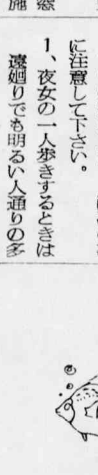 に注意して下さい。
1、夜女の一人歩きするときは
遠廻りでも明るい人通りの多